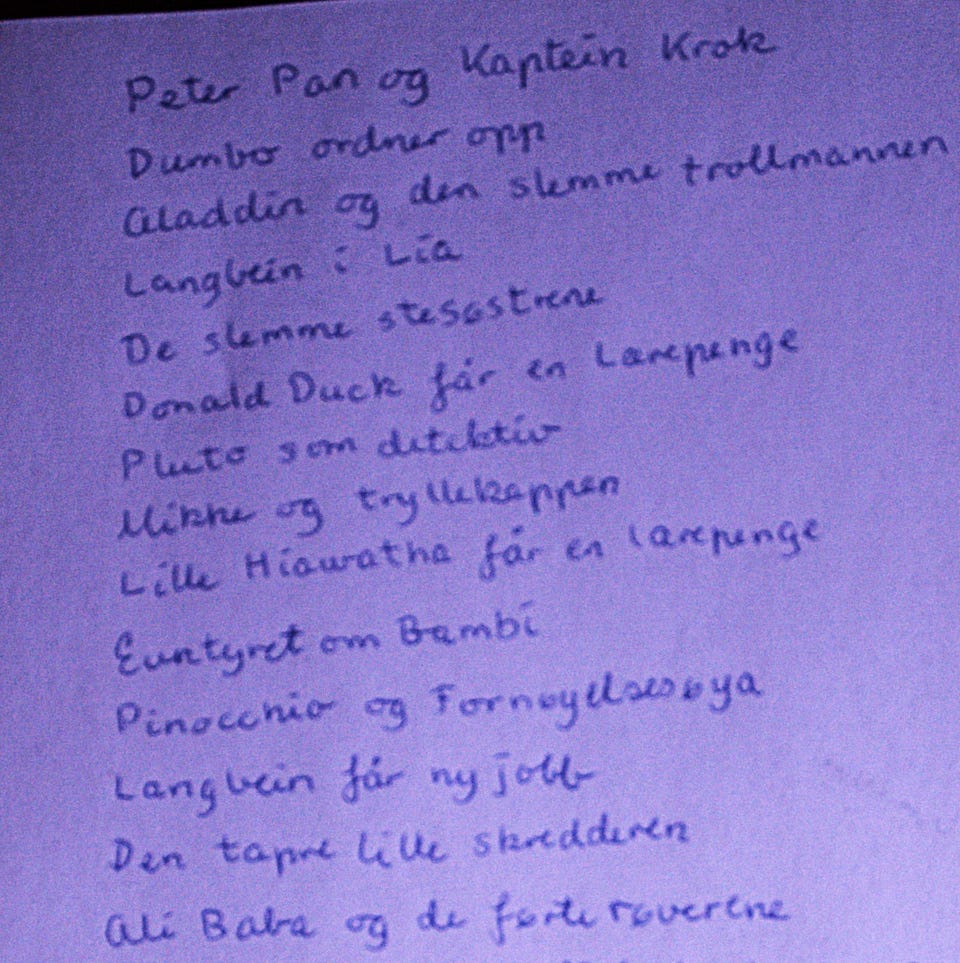 Peter Pan og Kaptein Krok
Dumbo ordner opp
Aladdin og den slemme trollmannen
Langbein i Lia
De slemme stesøstrene
Donald Duck får en Lærepenge
Pluto som detektiv
Mikke og tryllekappen
Lille Hiawatha får en lærepenge
Evntyret om Bambi
Pinocchio og Fornøyelsesøya
Langbein får ny jobb
Den tapre lille skredderen
Ali Baba og de førti røverene